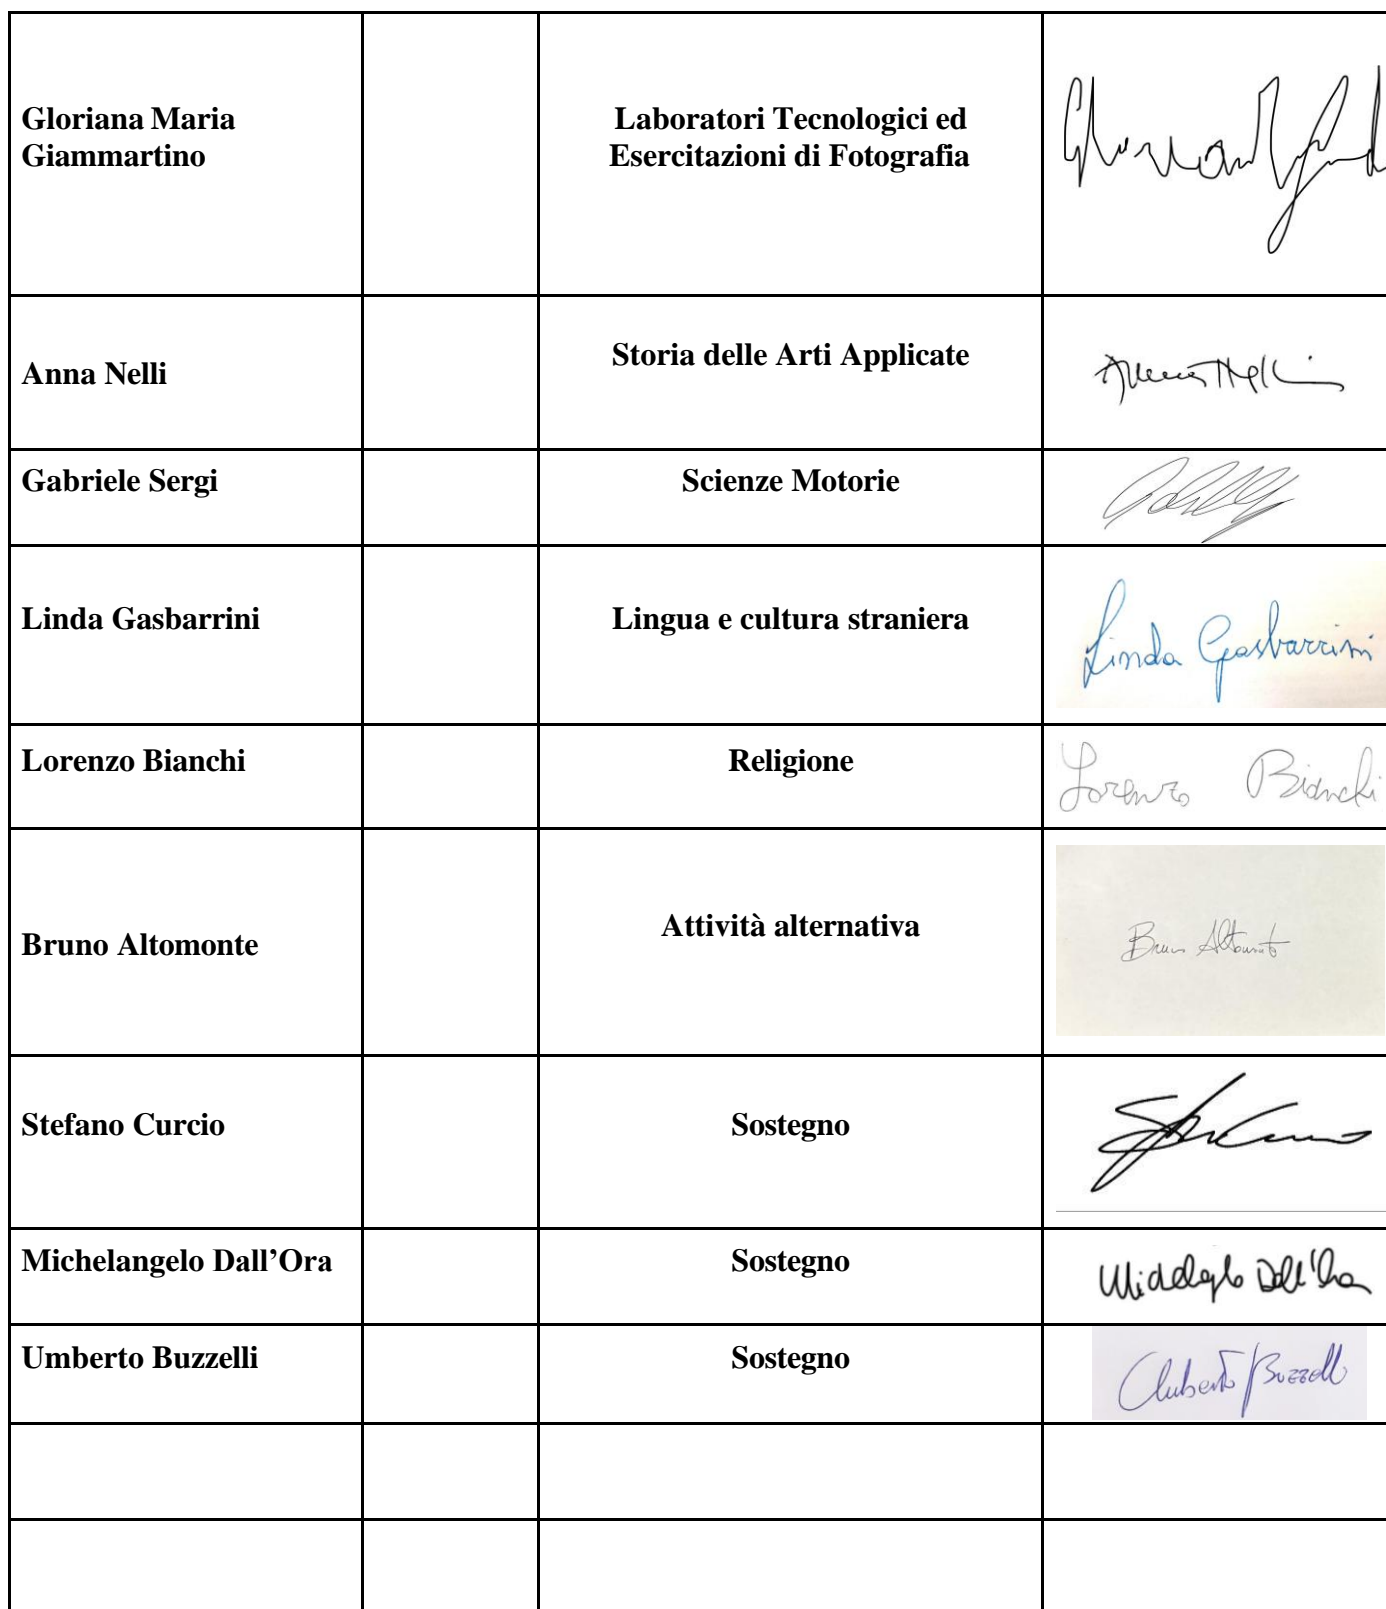 Gloriana Maria
Giammartino
Laboratori Tecnologici ed
Esercitazioni di Fotografia
Anna Nelli
Storia delle Arti Applicate
Gabriele Sergi
Scienze Motorie
Linda Gasbarrini
Lingua e cultura straniera
Linda Gasbarrini
Lorenzo Bianchi
Religione
Lorenzo Bianchi
Bruno Altomonte
Attività alternativa
Stefano Curcio
Sostegno
Michelangelo Dall’Ora
Sostegno
Umberto Buzzelli
Sostegno